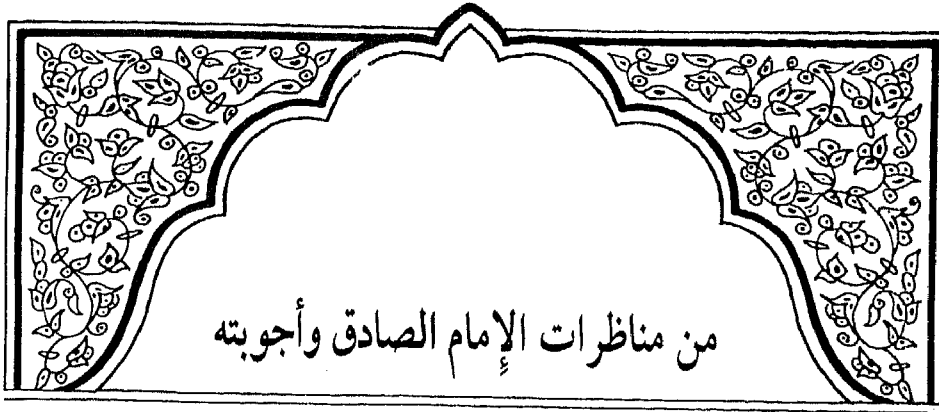 من مناظرات الإِمام الصادق وأجوبته